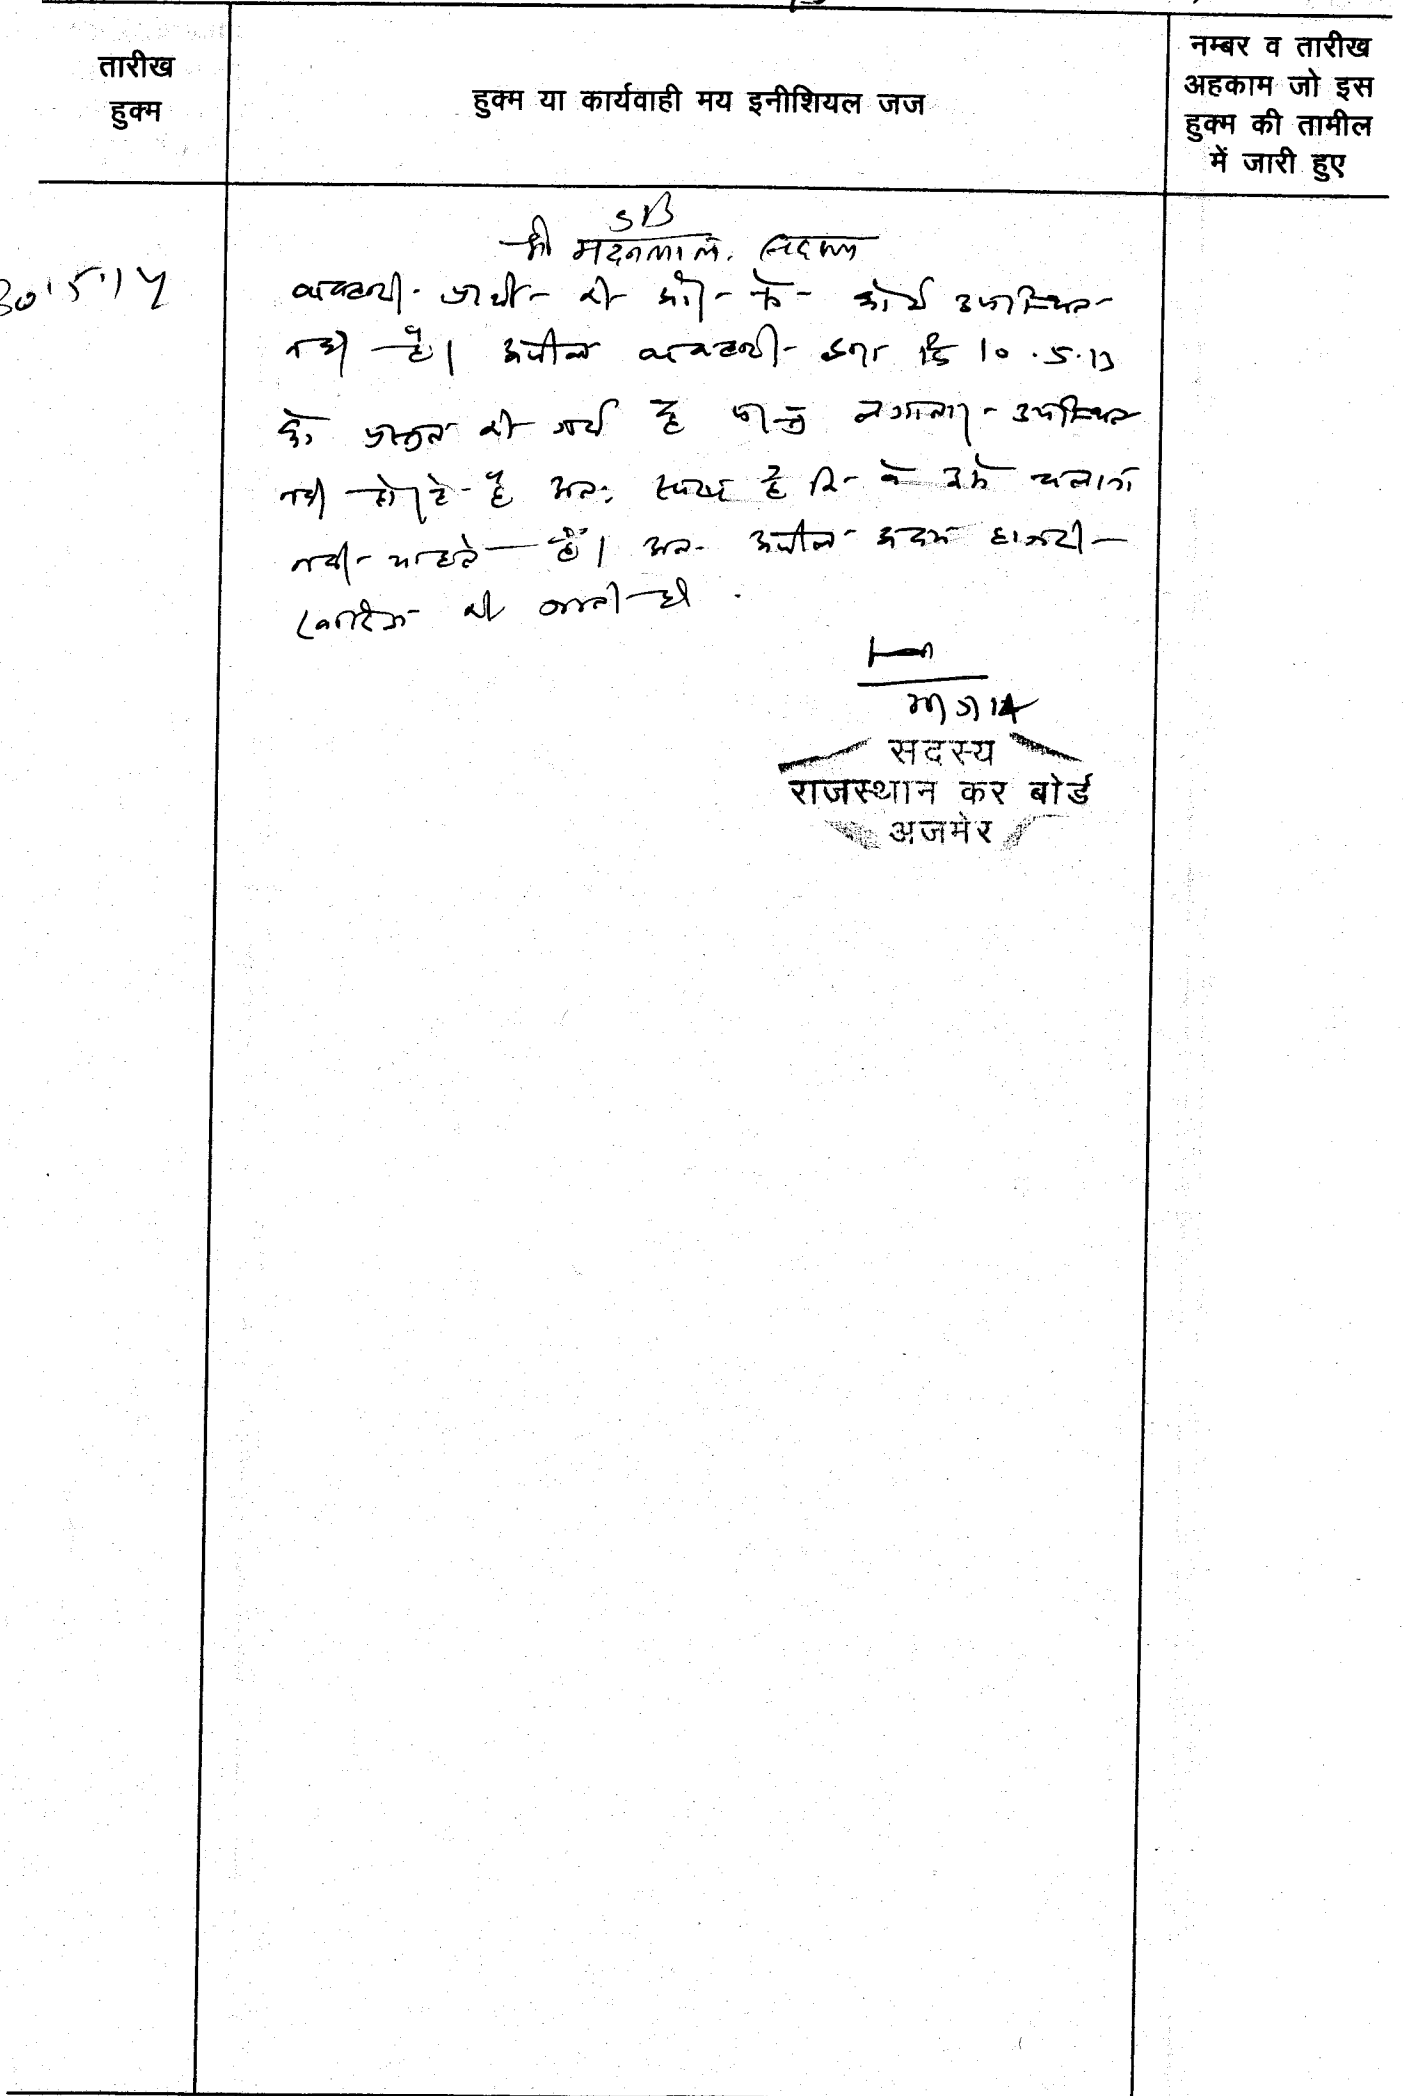 तारीख
हुक्म
हुक्म या कार्यवाही मय इनीशियल जज
नम्बर व तारीख
अहकाम जो इस
हुक्म की तामील
में जारी हुए
SB
श्री मदनलाल, सदस्य
30.5.14
व्यवहारी प्रार्थी की ओर से कोई उपस्थित
नहीं है। अपील व्यवहारी द्वारा दि 10.5.13
को प्रस्तुत की गई है परन्तु लगातार उपस्थित
नहीं हो रहे हैं अतः स्पष्ट है कि वे इसे चलाना
नहीं चाहते हैं। अतः अपील अदम हाजरी
खारिज की जाती है
सदस्य
राजस्थान कर बोर्ड
अजमेर